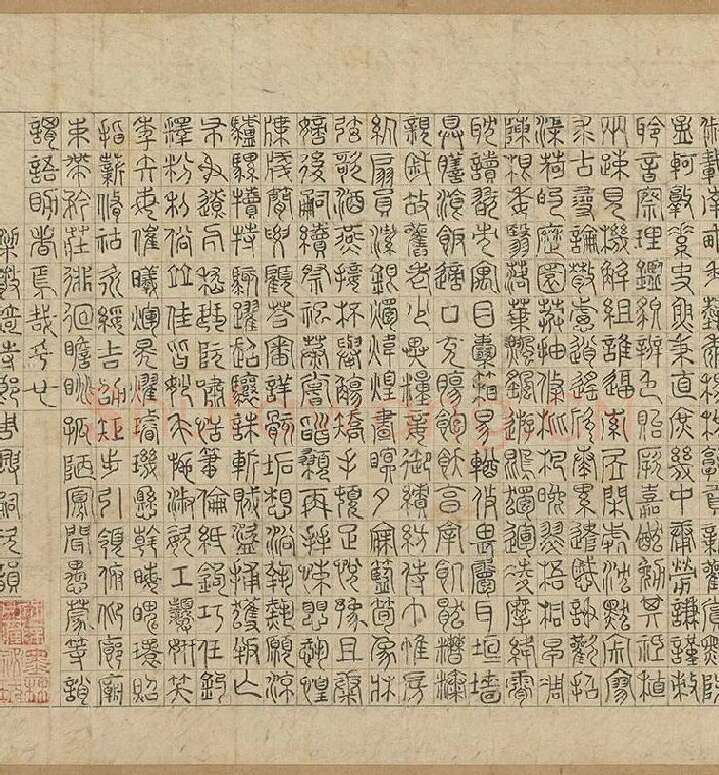 俶載南畝我藝黍稷稅熟貢新勸賞黜陟
孟軻敦素史魚秉直庶幾中庸勞謙謹敕
聆音察理鑑貌辨色貽厥嘉猷勉其祗植
兩疏見機解組誰逼索居閒處沉默寂寥
求古尋論散慮逍遙欣奏累遣慼謝歡招
渠荷的歷園莽抽條枇杷晚翠梧桐早凋
陳根委翳落葉飄颻遊鵾獨運凌摩絳霄
耽讀翫市寓目囊箱易輶攸畏屬耳垣墻
具膳飡飯適口充腸飽飫烹宰飢厭糟糠
親戚故舊老少異糧妾御績紡侍巾帷房
紈扇員潔銀燭煒煌晝瞑夕寐藍筍象牀
弦歌酒燕接杯舉觴矯手頓足悅豫且康
嫡後嗣續祭祀蒸嘗稽顙再拜悚懼恐惶
牋牒簡要顧答審詳骸垢想浴執熱願涼
驢騾犢特駭躍超驤誅斬賊盜捕獲叛亡
布射遼丸嵇琴阮嘯恬筆倫紙鈞巧任釣
釋紛利俗竝佳皆妙毛施淑姿工顰妍笑
年矢每催曦暉晃耀璿璣懸斡晦魄環照
指薪脩祜永綏吉劭矩步引領俯仰廊廟
束帶矜莊徘徊瞻眺孤陋寡聞愚蒙等誚
謂語助者焉哉乎也
梁散騎侍郎周興嗣次韻